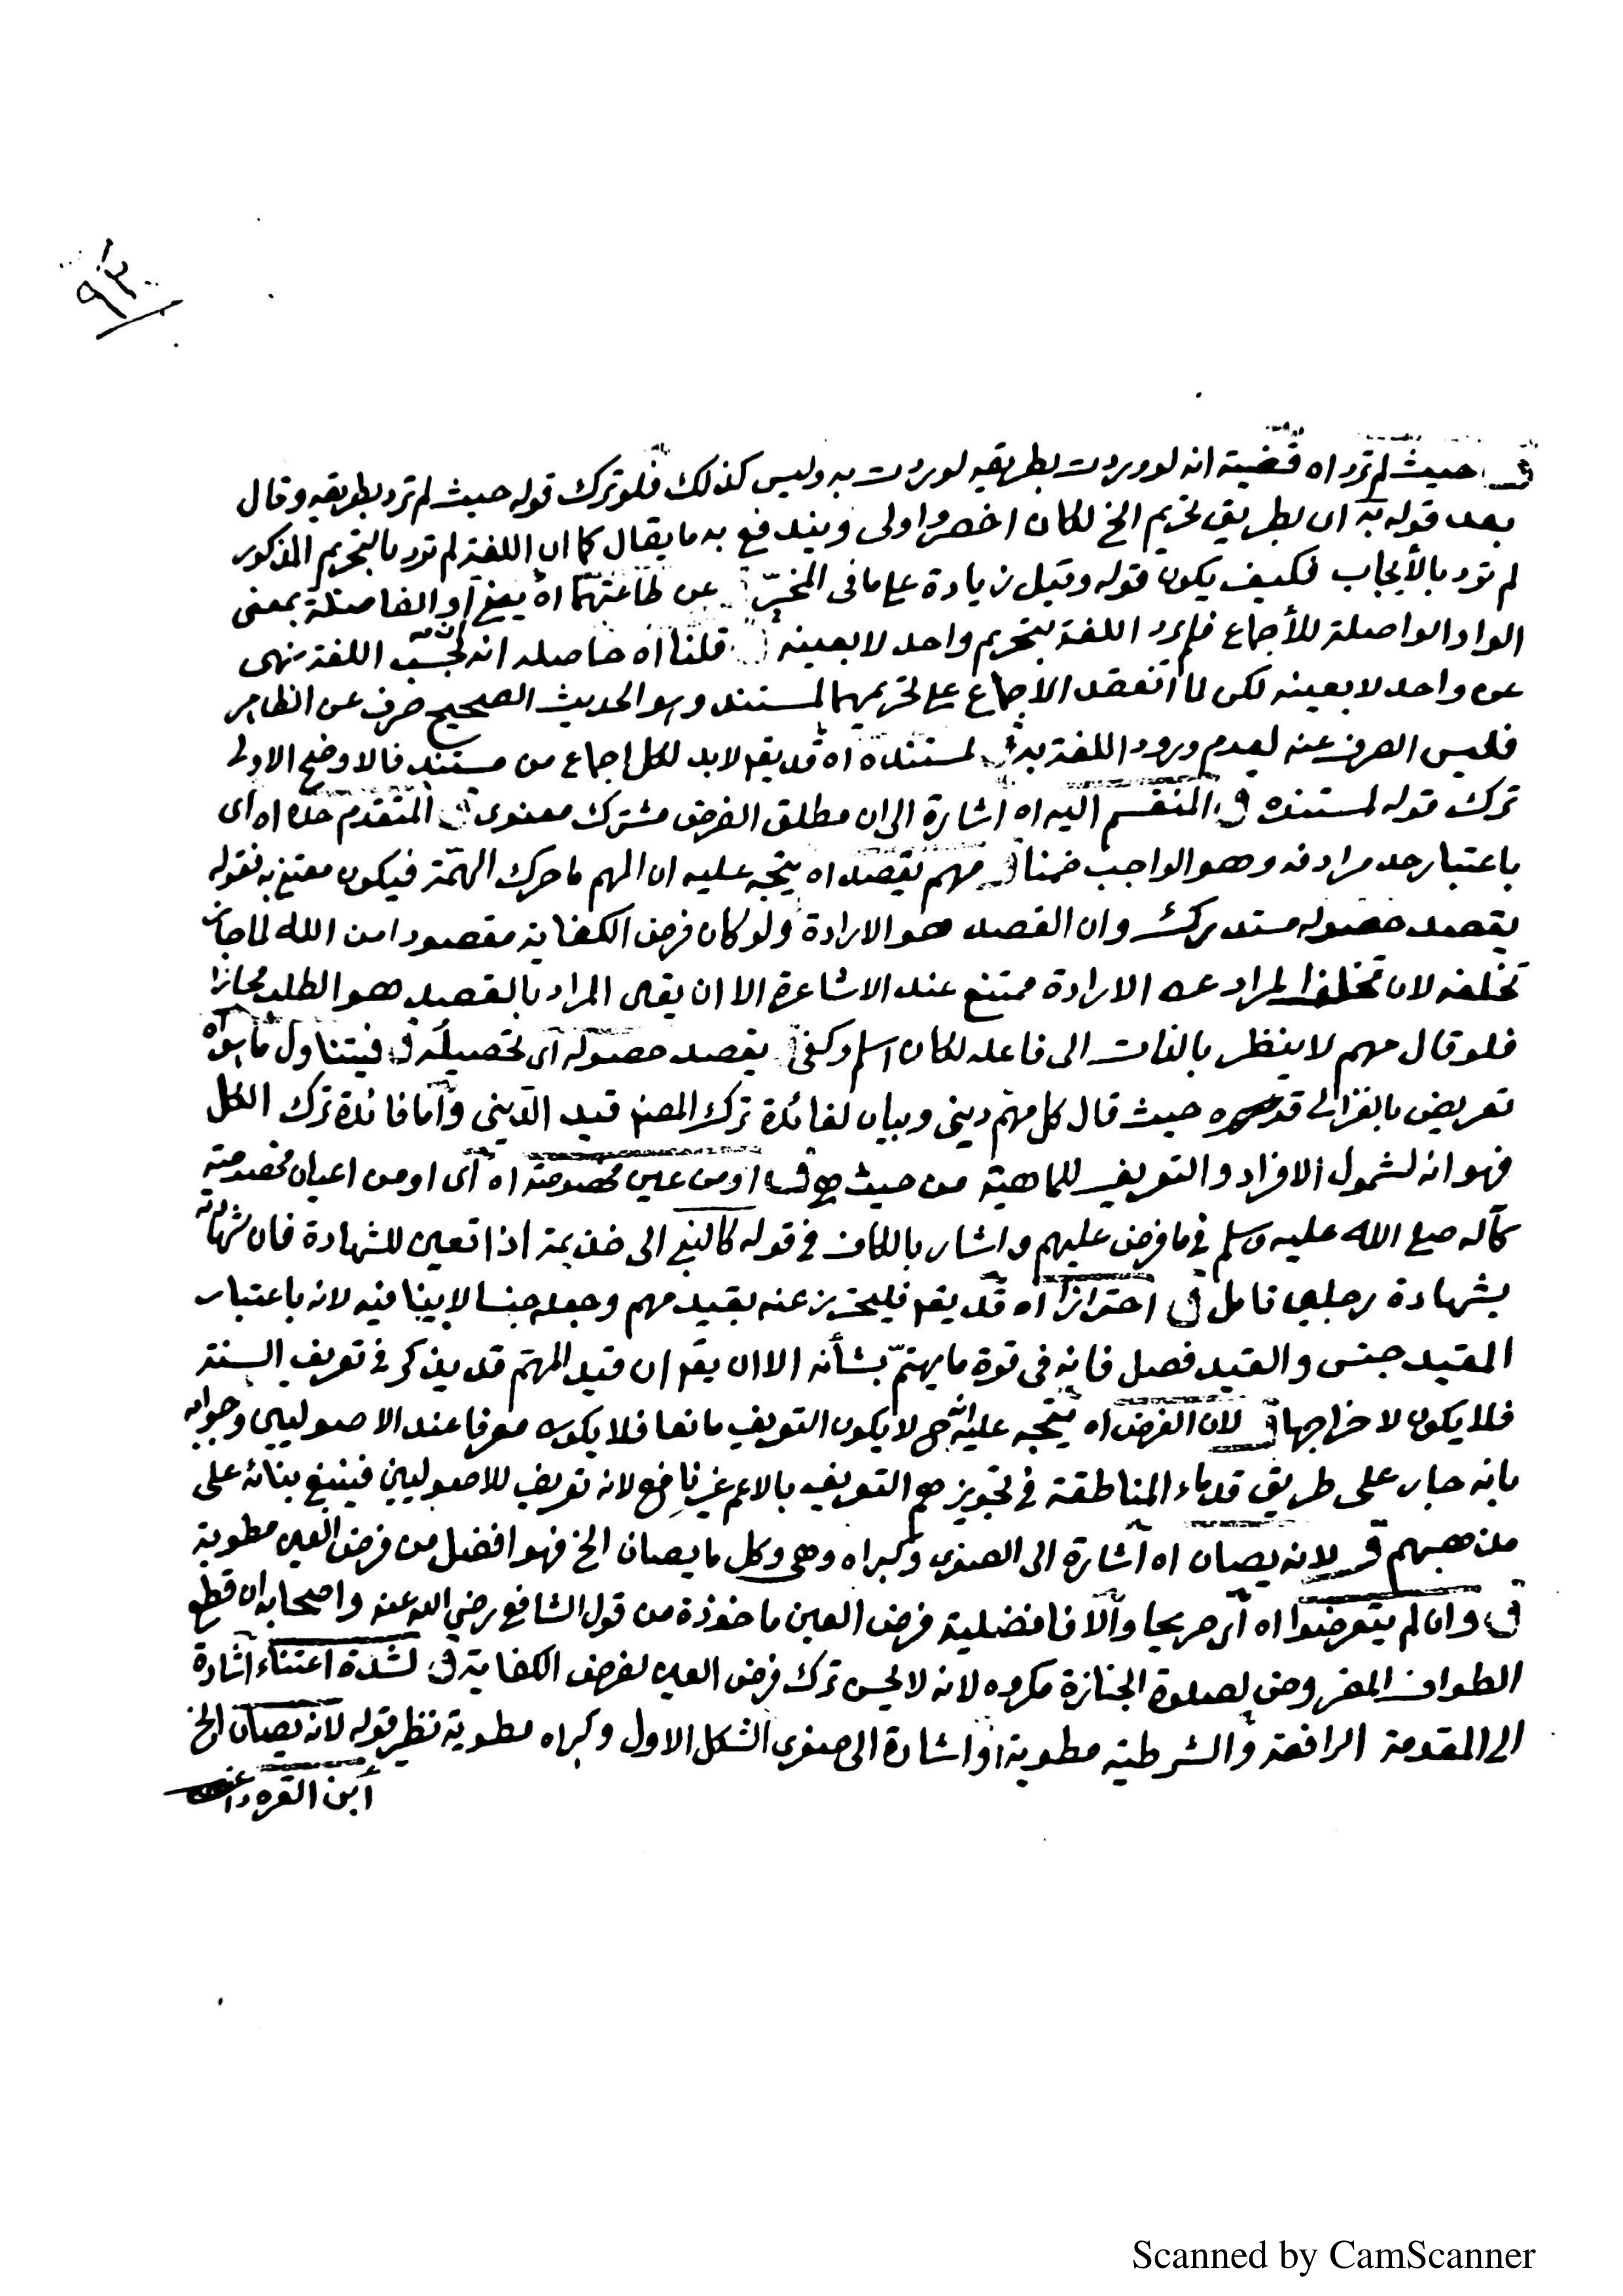 ٩٣
ق حيث لم ترد اه قضيته انه لو وردت بطريقه لوردت به وليس كذلك فلو ترك قوله حيث لم ترد بطريقه وقال
بعد قوله به اى بطريق تحريم الخ لكان اخصر واولى ويندفع به ما يقال كما ان اللغة لم ترد بالتحريم المذكور
لم ترد بالأيجاب فكيف يكون قوله وقيل زيادة على ما فى المخيّر ق عن طاعتهما اه يعنى او الفاصلة بمعنى
الواو الواصلة للأجماع فلم ترد اللغة بتحريم واحد لا بعينه ق قلنا اه حاصله انه بحسب اللغة نهى
عن واحد لا بعينه لكن لما انعقد الاجماع على تحريمهما لمستند وهو الحديث الصحيح صرف عن الظاهر
فليس الصرف عنه لعدم ورود اللغة به ق لمستنده اه قد يقم لابد لكل اجماع من مستند فالاوضح الاولى
ترك قوله لمستنده ق المنقسم اليه اه اشارة الى ان مطلق الفرض مشترك معنوى ق المتقدم حده اه اى
باعتبار حد مرادفه وهو الواجب ضمنا ق مهم يقصد اه يتجه عليه ان المهم ما حرك الهمّة فيكون مغن به فقوله
يقصد حصوله مستدرك وان القصد هو الارادة ولو كان فرض الكفاية مقصودا من الله لما جاز
تخلفه لان تخلف المراد عن الارادة ممتنع عند الاشاعرة الا ان يقى المراد بالقصد هو الطلب مجازا
فلو قال مهم لا ينظر بالذات الى فاعله لكان اسلم وكفى ق يقصد حصوله اى تحصيله ق فيتناول ما هو اه
تعريض بالغزالى قدسره حيث قال كل مهّم دينى وبيان لفائدة ترك المصن قيد الدّينى واما فائدة ترك الكل
فهو انه لشمول الافراد والتعريف للماهية من حيث هى ق او من عين مخصوصة اه اى او من اعيان مخصوصة
كآله صلى الله عليه وسلم فى ما فرض عليهم واشار بالكاف فى قوله كالنبى الى خذيمة اذا تعين للشهادة فان شهادته
بشهادة رجلين تامل ق احترازا اه قد يقم فليحترز عنه بقيد مهم وجعله جنسا لا ينافيه لانه باعتبار
المقيد جنس والقيد فصل فانه فى قوة ما يهتمّ بشأنه الا ان يقم ان قيد المهتم قد يذكر فى تعريف السنة
فلا يكون لاخراجها ق لان الغرض اه يتجه عليه انه ح لا يكون التعريف مانعا فلا يكون معرفا عند الاصوليين وجوابه
بانه جار على طريق قدماء المناطقة فى تجويزهم التعريف بالاعم غير نافع لانه تعريف للاصوليين فينبغى بنائه على
مذهبهم ق لانه يصان اه اشارة الى الصغرى وكبراه وهى وكل ما يصان الخ فهو افضل من فرض العين مطوية
ق وان لم يتعرضوا اه اى صريحا والّا فافضلية فرض العين ماخوذة من قول الشافعى رضي الله عنه واصحابه ان قطع
الطواف المفروض لصلوة الجنازة مكروه لانه لا يحسن ترك فرض العين لفرض الكفاية ق لشدة اعتناء اشارة
الى المقدمة الرافعة والشرطية مطوية او اشارة الى صغرى الشكل الاول وكبراه مطوية نظير قوله لانه يصان الخ
ابن القره داغى
Scanned by CamScanner